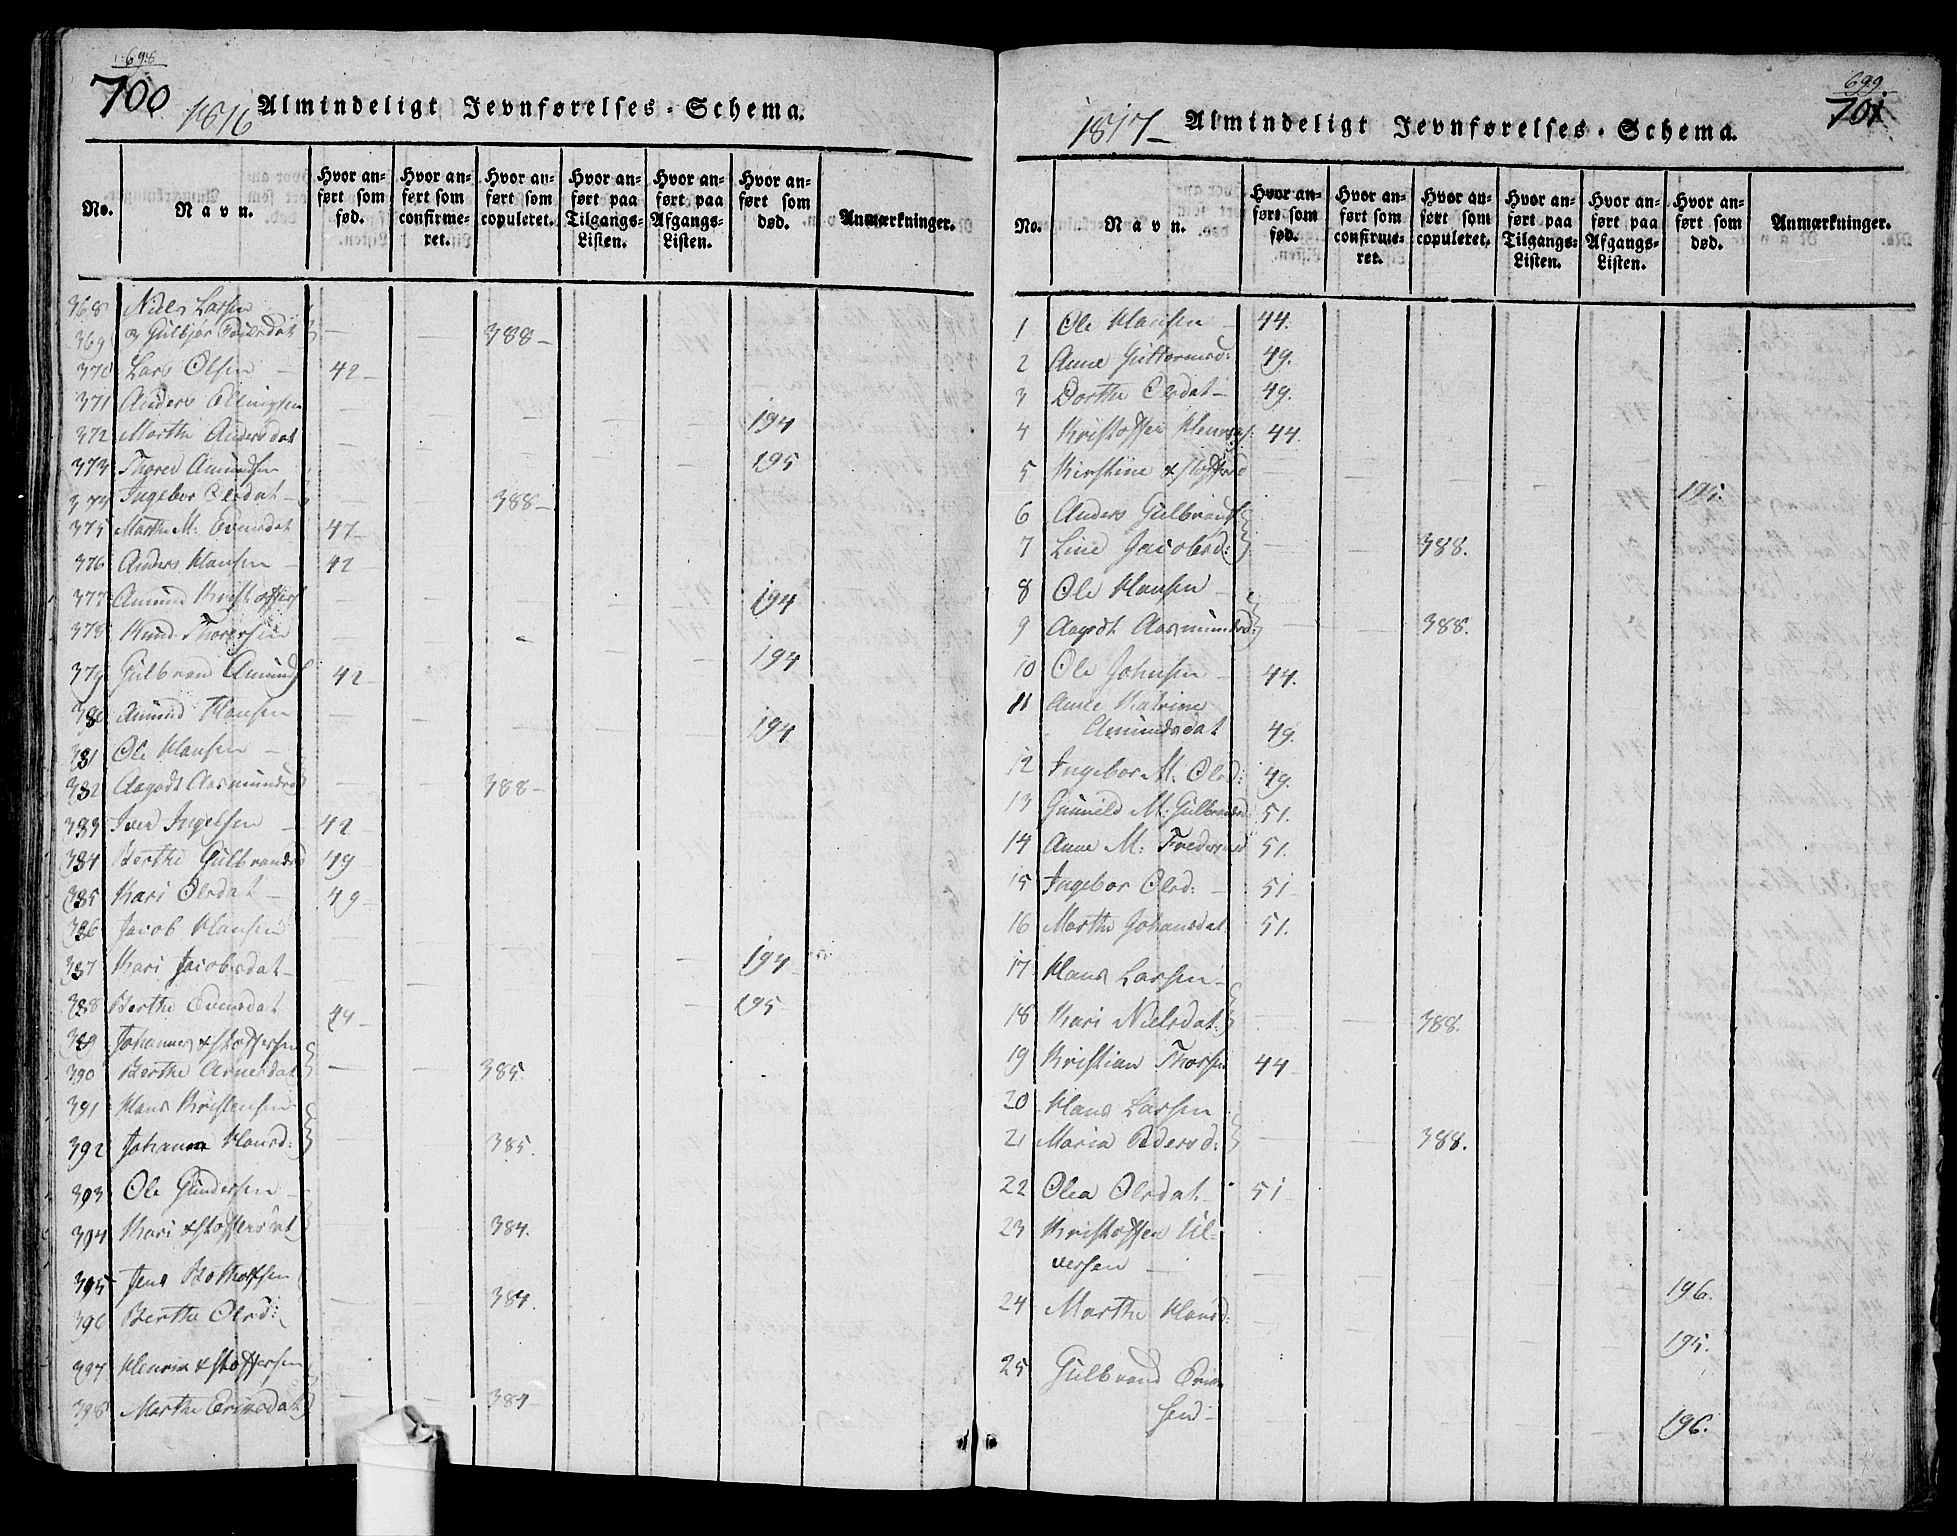 698
700. 1816 Almindeligt Jevnførelses-Schema.
No. Navn. Hvor anført som fød. Hvor anført som confirmeret. Hvor anført som copuleret. Hvor anført paa Tilgangs-Listen. Hvor anført paa Afgangs-Listen. Hvor anført som død. Anmærkninger.
368 Niels Larsen
369 388-
370 Lars Olsen - 42-
371 Anders Ellingsen
372 Marthe Andersdat 194
373 Thorer Amundsen 195
374 Ingebor Olsdat- 388-
375 Marthe M: Evensdat 47-
376 Anders Hansen - 42-
377 Amund Kristoffers 194
378 Knud Thorersen
379 Gulbran Amunds 42- 194
380 Amund Hansen 194
381 Ole Hansen -
382 Aagodt Aasmundsd 388-
383 Iver Ingelsen - 42-
384 Berthe Gulbrandsd 49
385 Kari Olsdat - 49-
386 Jacob Hansen
387 Kari Jacobsdat- 194
388 Berthe Evensdat 195
389 Johannes Xstoffersen
390 Berthe Arnesdat 385.
391 Hans Kristensen
392 Johanne Hansd: 385.
393 Ole Gundersen -
394 Kari Xstoffersdat 384.
395 Jens
396 Berthe Olsd: 384.
397 Henrik Xstoffersen
398 Marthe Ericsdat 384-
699.
1817- Almindeligt Jevnførelses-Schema. 701
No. Navn. Hvor anført som fød. Hvor anført som confirmeret. Hvor anført som copuleret. Hvor anført paa Tilgangs-Listen. Hvor anført paa Afgangs-Listen. Hvor anført som død. Anmærkninger.
1 Ole Hansen - 44.
2 Anne Guttormsd: 49.
3 Dorthe Olsdat- 49.
4 Kristoffer Henrics. 44.
5 Kirstine Xstoffersd 195.
6 Anders Gulbrands
7 Line Jacobsd: 388.
8 Ole Hansen -
9 Aagodt Aasmundsd: 388.
10 Ole Johnsen - 44.
11 Anne Katrine
Amundsdat 49.
12 Ingebor M: Olsd: 49.
13 Gunnild M: Gulbrandsd 51.
14 Anne M: Fredriksd 51.
15 Ingebor Olsd: - 51
16 Marthe Johansdat 51.
17 Hans Larsen -
18 Kari Nielsdat. 388.
19 Kristian Thorsen 44
20 Hans Larsen
21 Maria Pedersd: 388.
22 Olea Olsdat - 51
23 Kristoffer Ul-
versen - 196.
24 Marthe Hansd: 195.
25 Gulbrand Eric
sen- 196.